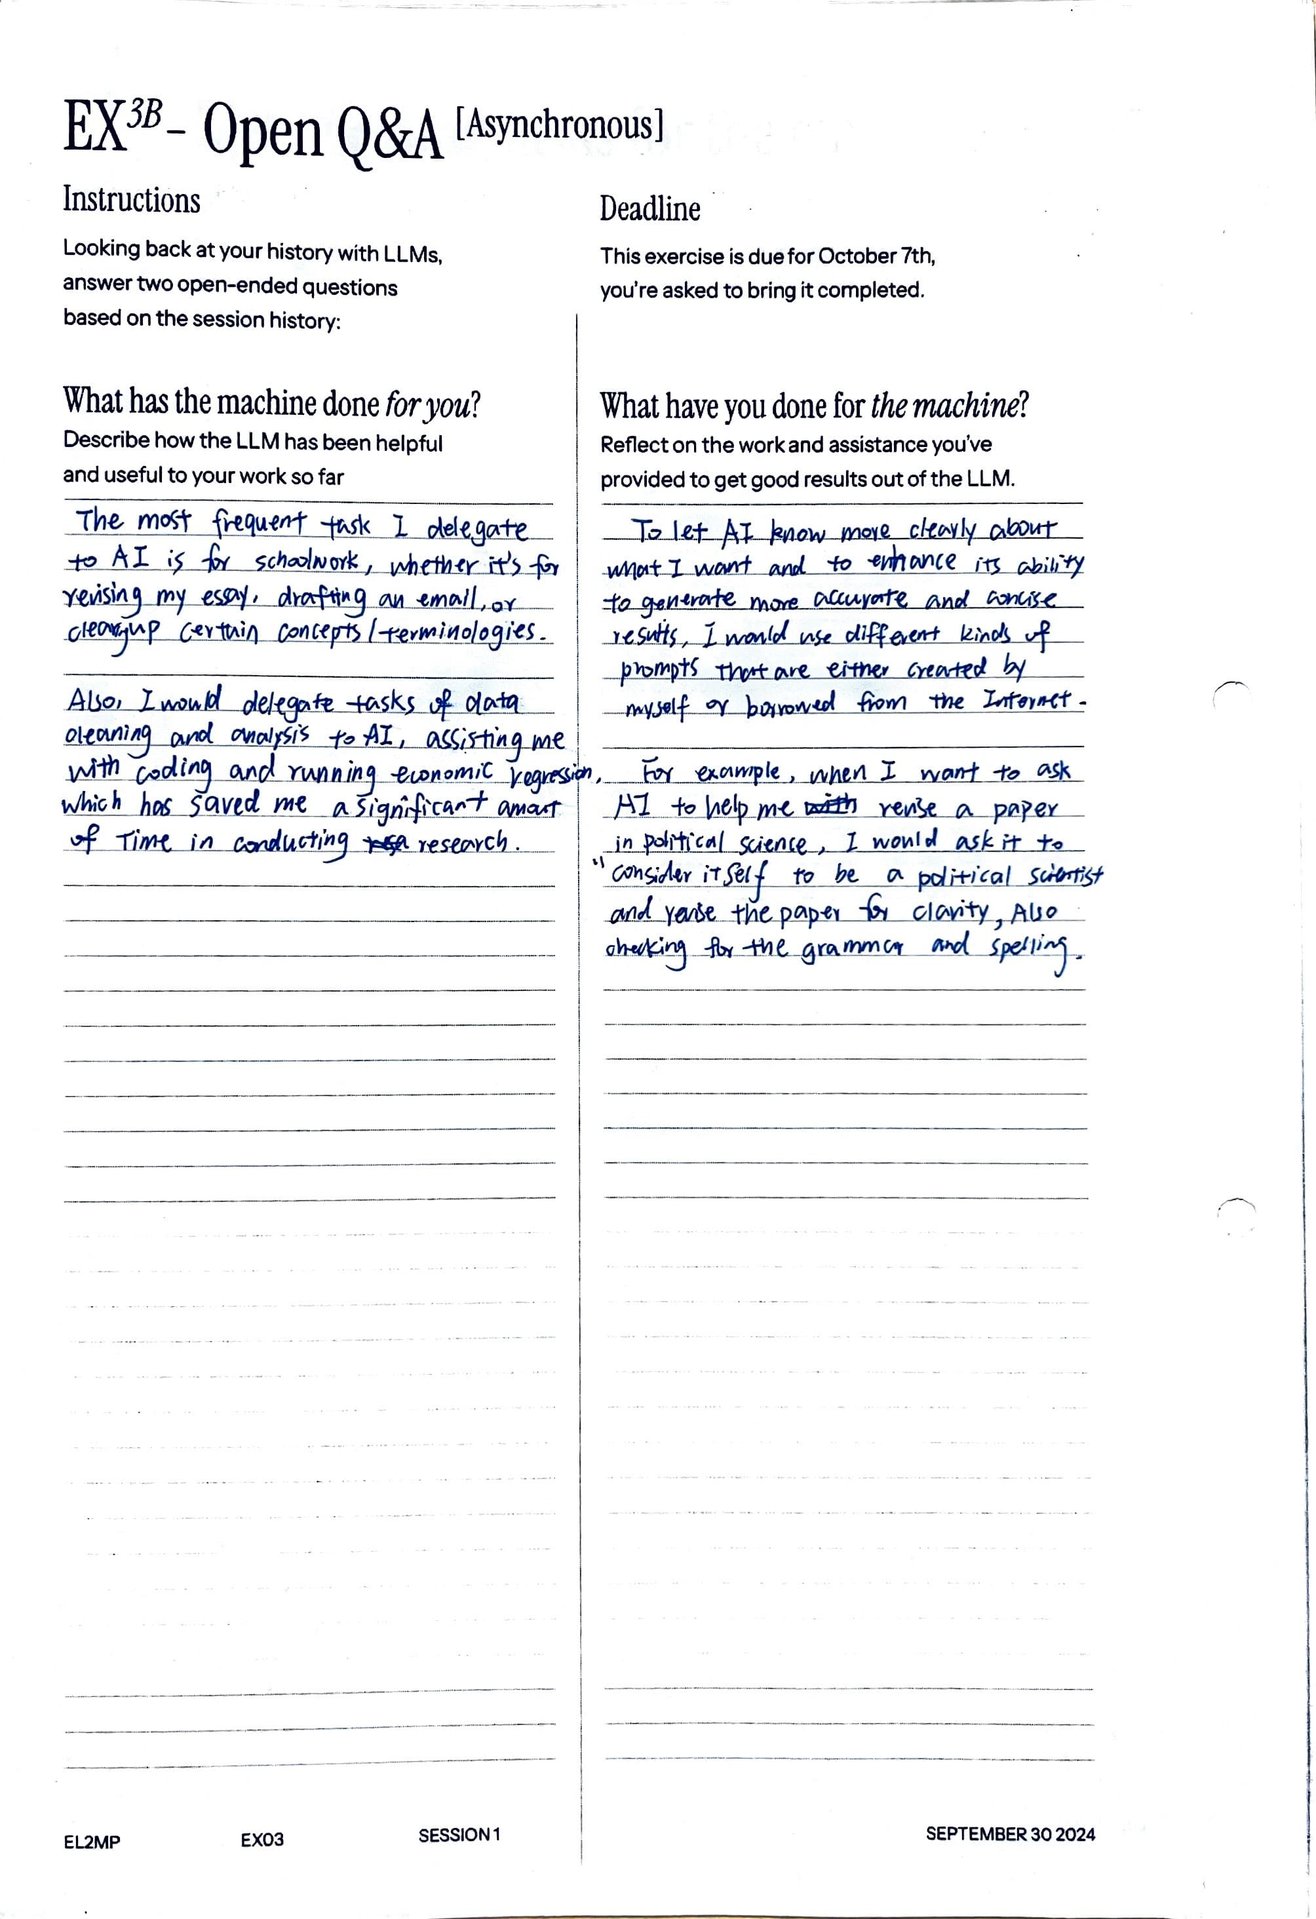 EX3B – Open Q&A [Asynchronous]
Instructions
Looking back at your history with LLMs,
answer two open-ended questions
based on the session history:
Deadline
This exercise is due for October 7th,
you're asked to bring it completed.
What has the machine done for you?
Describe how the LLM has been helpful
and useful to your work so far
The most frequent task I delegate
to AI is for schoolwork, whether it's for
revising my essay, drafting an email, or
clearup certain concepts/terminologies.
Also, I would delegate tasks of data
cleaning and analysis to AI, assisting me
with coding and running economic regression,
which has saved me a significant amount
of Time in conducting research.
What have you done for the machine?
Reflect on the work and assistance you've
provided to get good results out of the LLM.
To let AI know more clearly about
what I want and to enhance its ability
to generate more accurate and concise
results, I would use different kinds of
prompts that are either created by
myself or borrowed from the Internet.
For example, when I want to ask
AI to help me with revise a paper
in political science, I would ask it to
"consider itself to be a political scientist
and revise the paper for clarity, Also
checking for the grammar and spelling.
EL2MP EX03 SESSION 1 SEPTEMBER 30 2024